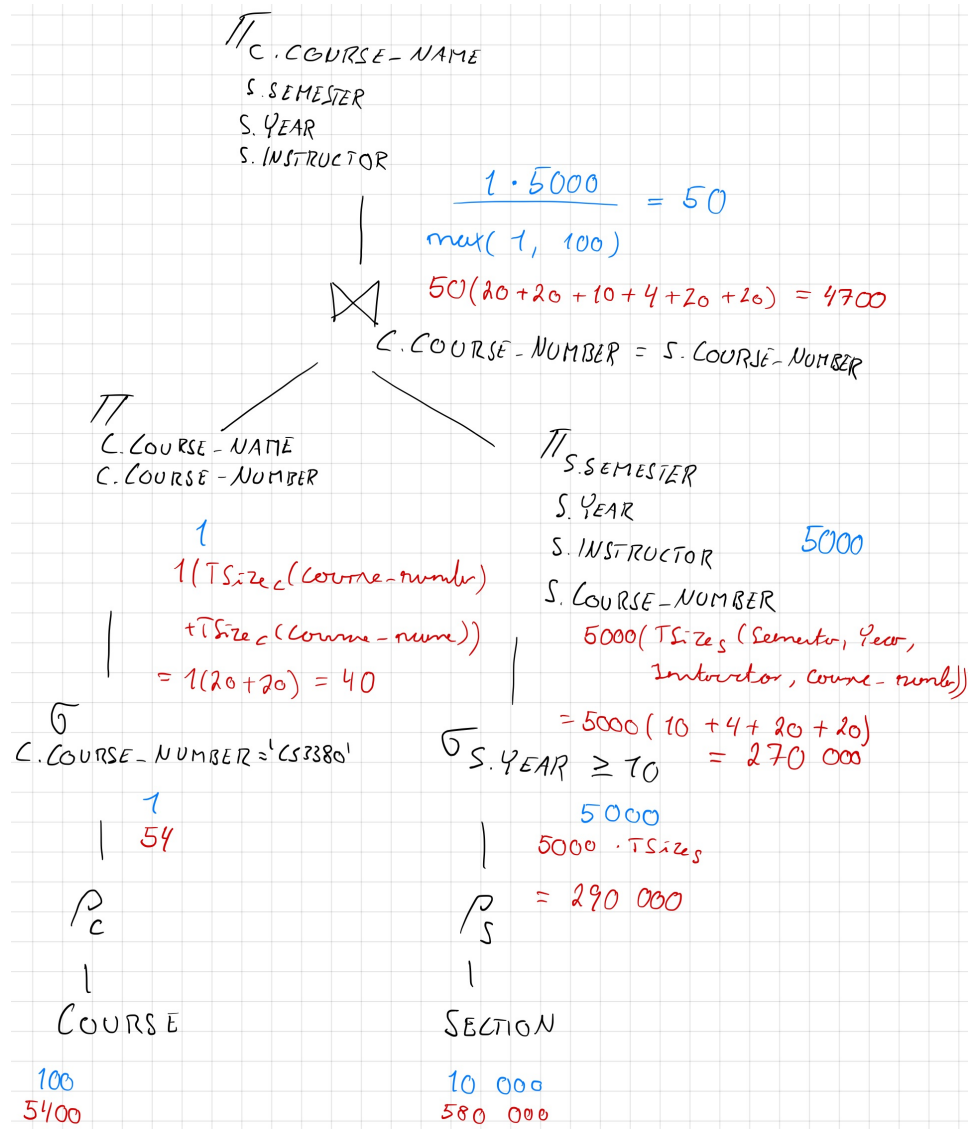 Π C.COURSE-NAME
S.SEMESTER
S.YEAR
S.INSTRUCTOR
1 · 5000 / max(1, 100) = 50
50(20+20+10+4+20+20) = 4700
⋈ C.COURSE-NUMBER = S.COURSE-NUMBER
Π
C.COURSE-NAME
C.COURSE-NUMBER
1
1(TSize_C(course-number)
+TSize_C(course-name))
= 1(20+20) = 40
σ
C.COURSE-NUMBER='CS3380'
1
54
ρ_C
COURSE
100
5400
Π S.SEMESTER
S.YEAR
S.INSTRUCTOR
5000
S.COURSE-NUMBER
5000(TSize_S(Semester, Year,
Instructor, course-number))
= 5000(10+4+20+20)
= 270 000
σ S.YEAR ≥ 10
5000
5000 · TSize_S
= 290 000
ρ_S
SECTION
10 000
580 000